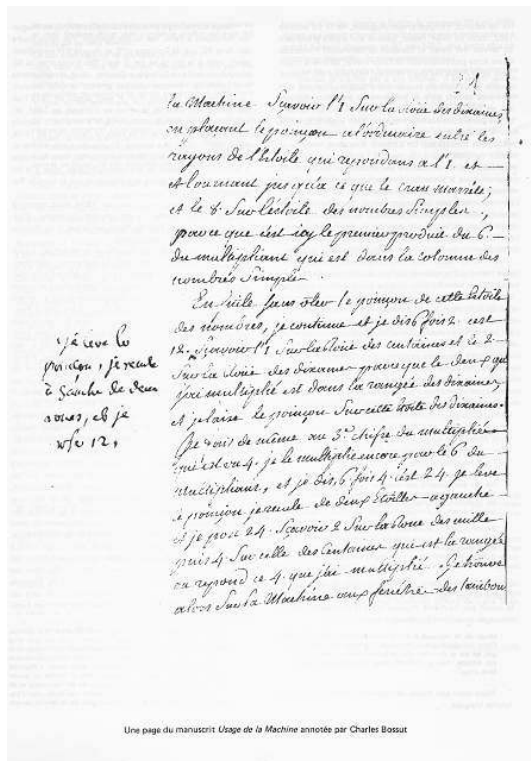 21
la Machine Sçavoir l'1 Sur la roüe des dixaines,
en plaçant le poinçon a l'ordinaire entre les
rayons de l'Etoile qui repondans a l'1 et
et tournant jusqu'a ce que le cran m'arrête;
et le 8 Sur l'étoile des nombres Simples,
parce que c'est icy le premier produit du 6
du multipliant qui est dans la colomne des
nombres Simples
En suite sans oter le poinçon de cette Etoile
des nombres, je continue et je dis 6 fois 2 c'est
12. Sçavoir l'1 Sur la Roüe des centaines et le 2
Sur la Roüe des dixaines parce que le deux que
j'ai multiplié est dans la rangée des dixaines,
et je laisse le poinçon Sur cette des dixaines.
Je vais de même au 3e chifre du multiplié
qui est un 4, je le multiplie encore par le 6 du
multipliant, et je dis, 6 fois 4 c'est 24. je leve
le poinçon je recule de deux Etoilles a gauche
et je pose 24. Sçavoir 2 Sur la Roue des mille
puis 4 Sur celle des Centaines qui est la rangée
ou repond ce 4 que j'ai multiplié. Je trouve
alors Sur la Machine aux fenêtres des tambours
je leve le
poinçon, je recule
à gauche de deux
roues, et je
12,
Une page du manuscrit Usage de la Machine annotée par Charles Bossut